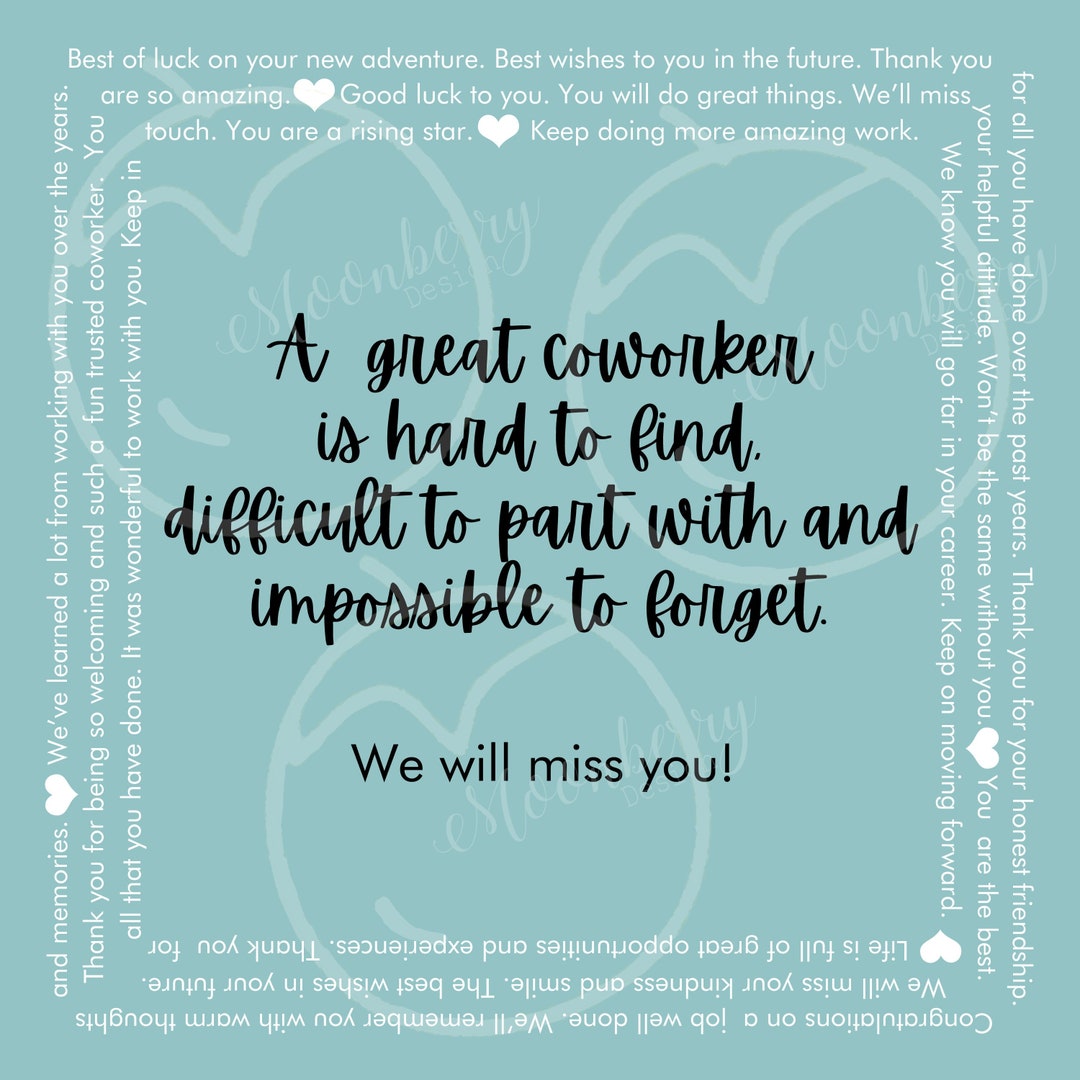 Best of luck on your new adventure. Best wishes to you in the future. Thank you
for all you have done over the past years. Thank you for your honest friendship.
Congratulations on a job well done. We'll remember you with warm thoughts
and memories. We've learned a lot from working with you over the years.
are so amazing. Good luck to you. You will do great things. We'll miss
your helpful attitude. Won't be the same without you. You are the best.
We will miss your kindness and smile. The best wishes in your future.
Thank you for being so welcoming and such a fun trusted coworker. You
touch. You are a rising star. Keep doing more amazing work.
We know you will go far in your career. Keep on moving forward.
Life is full of great opportunities and experiences. Thank you for
all that you have done. It was wonderful to work with you. Keep in
A great coworker
is hard to find,
difficult to part with and
impossible to forget.
We will miss you!
Moonberry
Design
Moonberry
Design
Moonberry
Design